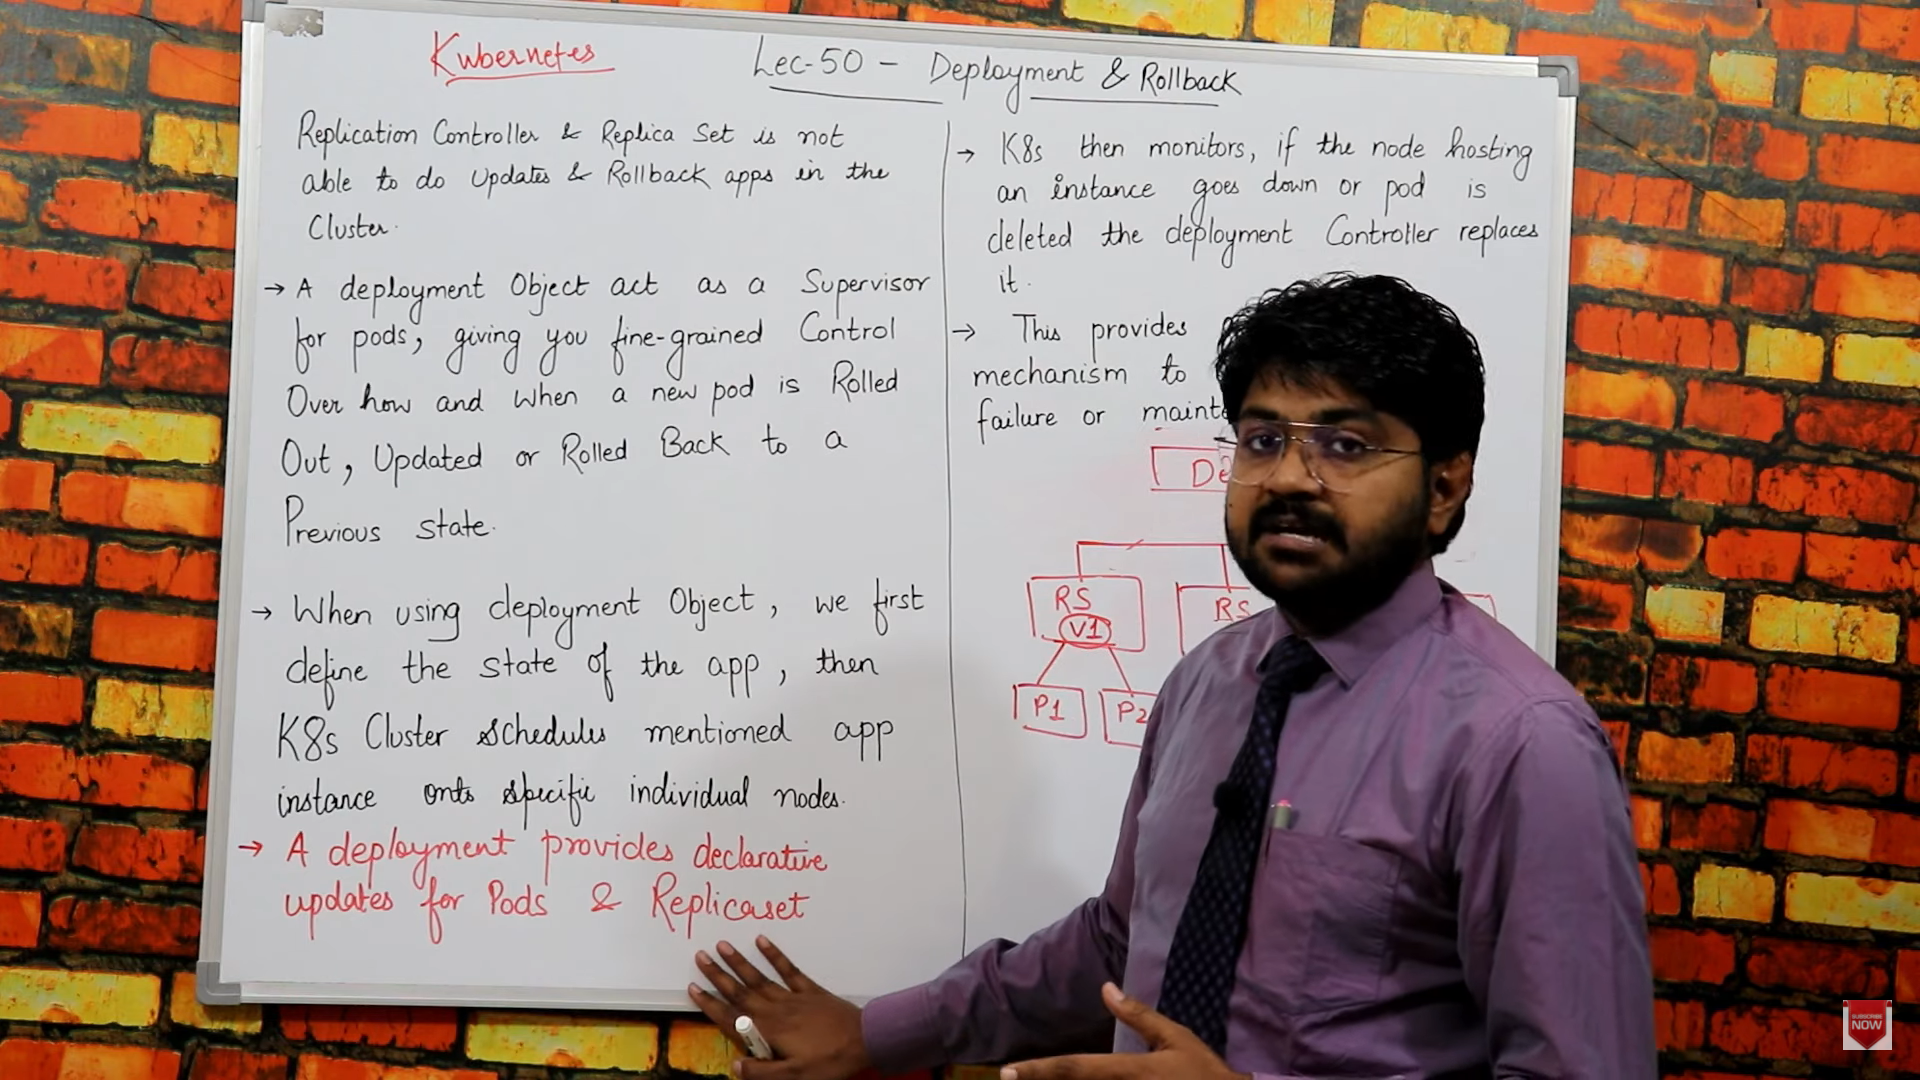 Kubernetes
Lec-50 - Deployment & Rollback
Replication Controller & Replica Set is not
able to do Updates & Rollback apps in the
Cluster.
→ A deployment Object act as a Supervisor
for pods, giving you fine-grained Control
Over how and when a new pod is Rolled
Out, Updated or Rolled Back to a
Previous state.
→ When using deployment Object, we first
define the state of the app, then
K8s Cluster schedules mentioned app
instance onto specific individual nodes.
→ A deployment provides declarative
updates for Pods & Replicaset
→ K8s then monitors, if the node hosting
an instance goes down or pod is
deleted the deployment Controller replaces
it.
→ This provides
mechanism to
failure or
De
RS
V1
RS
P1
P2
SUBSCRIBE
NOW